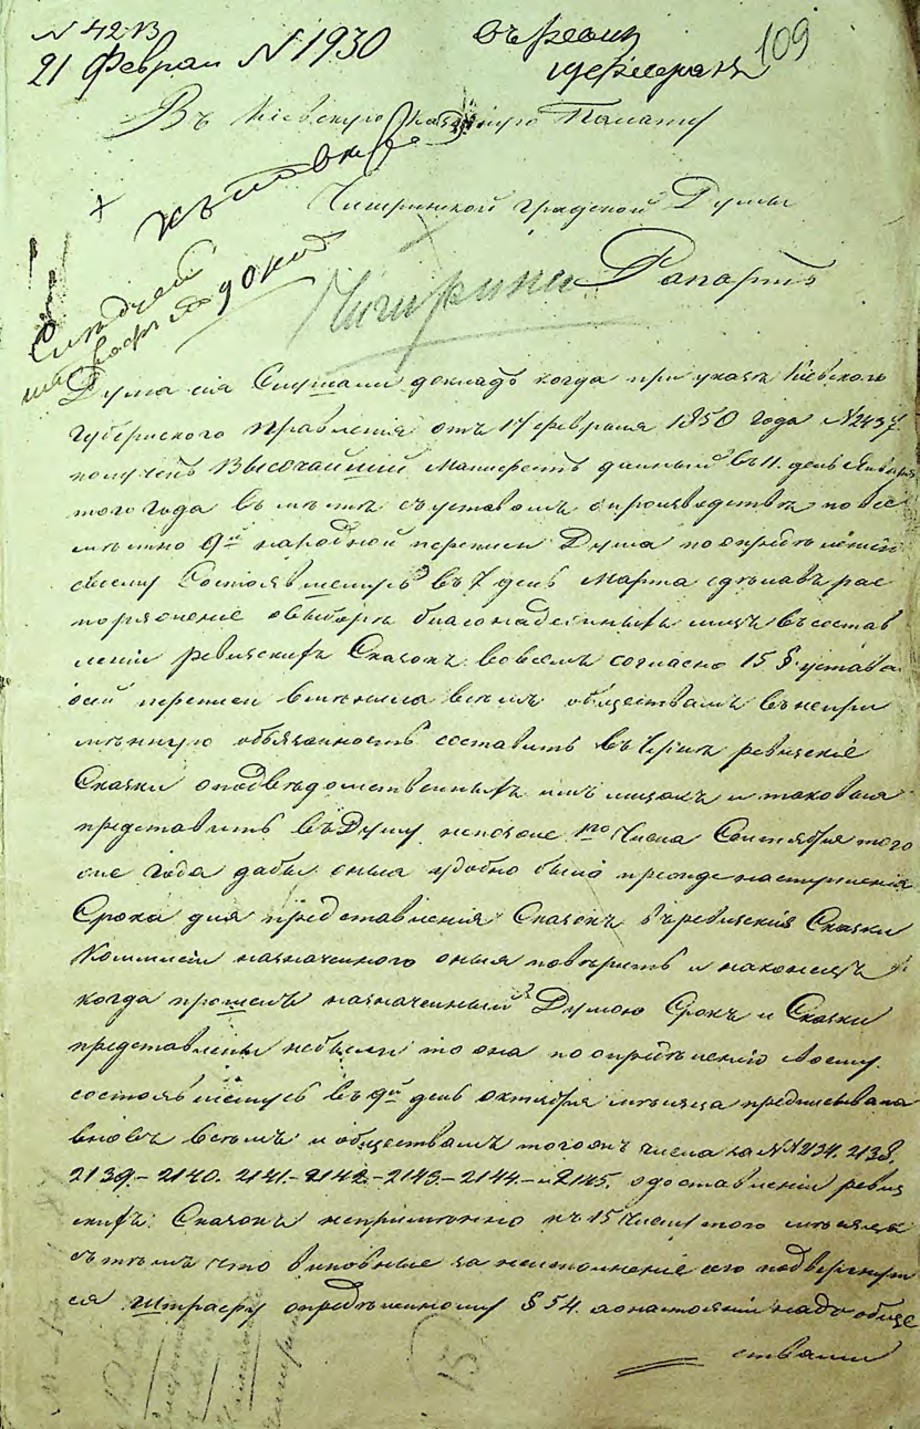 N 4213
21 Феврал N 1930
109
Въ Кіевскую Казенную Палату
Чигринской градской Думы
Чигирин
Рапортъ
Дума сія Слушали докладъ когда при указѣ Кіевского
Губернского Правленія отъ 17 февраля 1850 года N 2437.
полученъ Высочайшій Манифестъ данный въ 11. день Января
того года вмѣстѣ съ уставомъ о производствѣ повсе
мѣстно 9й народной переписи Дума по опредѣленію
своему Состоявшемусь въ 7 день Марта сдѣлавъ рас
поряженіе о выборѣ благонадежныхъ лицъ въ состав
леніи ревизскихъ Сказокъ во всемъ согласно 15 § устава
сей переписи вмѣнила всѣмъ обществамъ въ непри
мѣнную обязанность составить въ ревизскіе
Сказки о подвѣдомственныхъ имъ лицахъ и таковыя
представить въ Думу непозже 1го Числа Сентября того
же Года дабы оныя удобно было прежде наступленія
Срока для представленія Сказокъ въ ревизскія Сказки
Коммисіи назначенного оныя повѣрить и наконецъ
когда прошелъ назначенный Думою Срокъ и Сказки
представлены небыли то она по опредѣленію своему
состоявшемусь въ 9й день октября мѣсяца предписывала
вновь всѣмъ и обществамъ того жъ числа за NN 2134. 2138.
2139.– 2140. 2141.– 2142.– 2143.– 2144.– и 2145. о доставленіи ревиз
скихъ Сказокъ непримѣнно къ 15 Числу того мѣсяца
съ тѣмъ что виновные за неисполненіе сего подвергнут
ся штрафу опредѣленному § 54. а о настояніи надъ обще
ствами